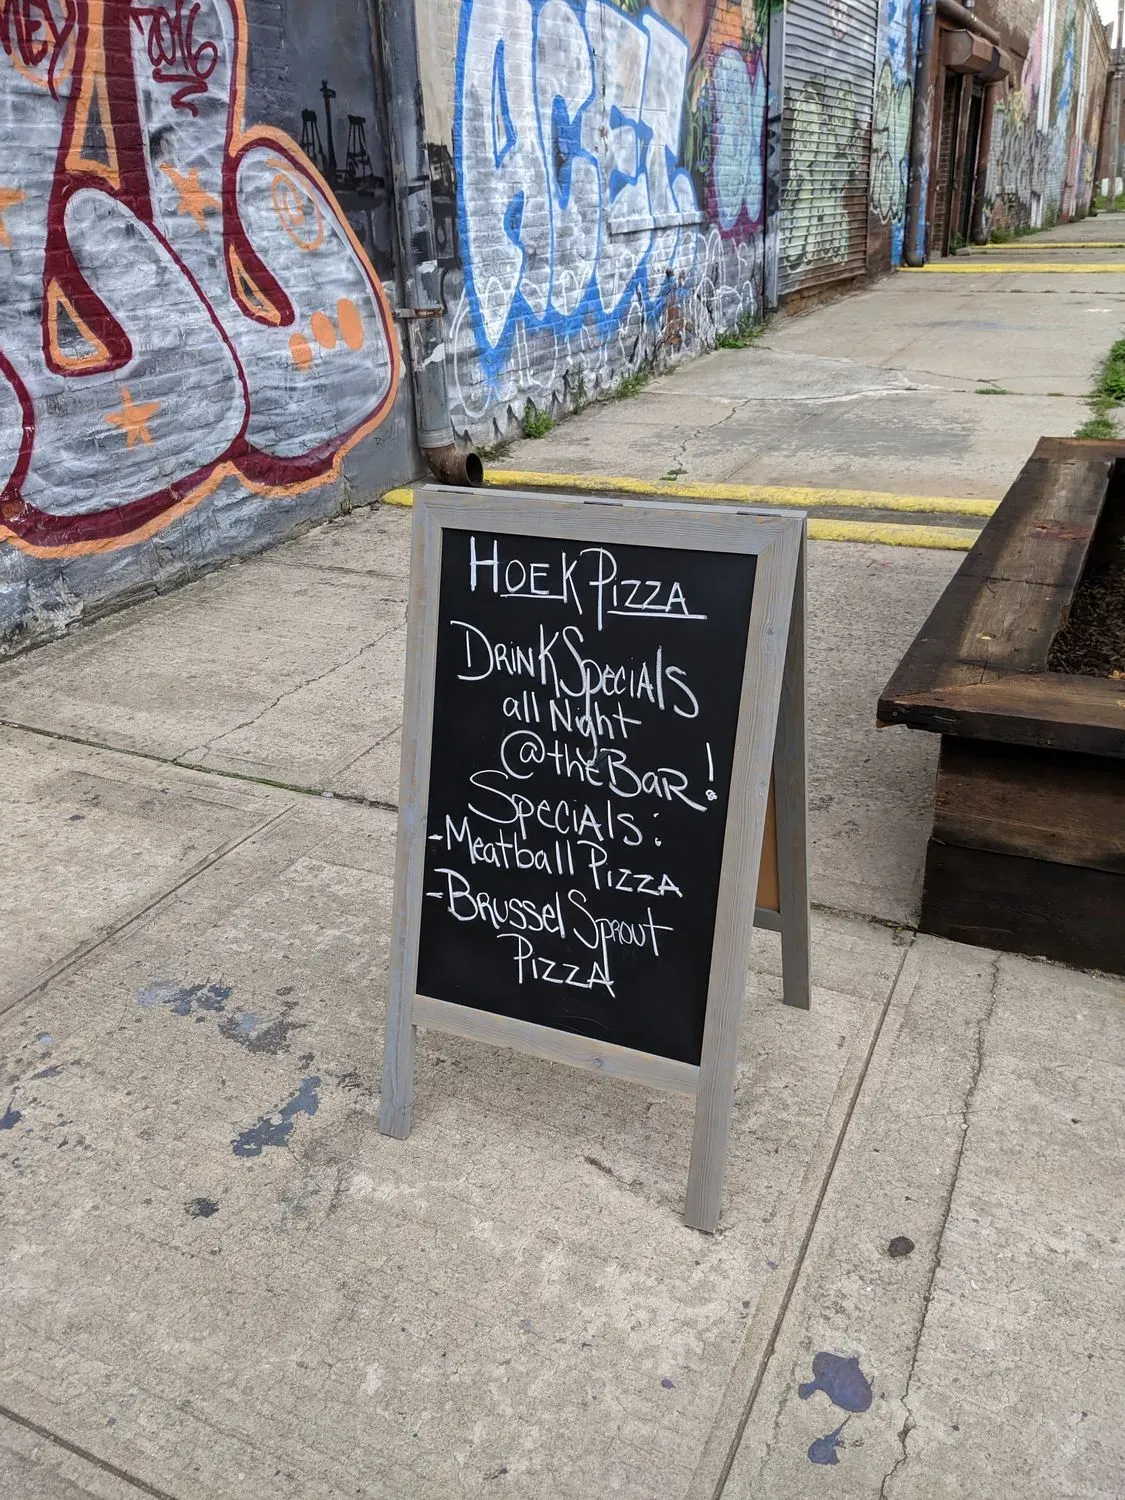 2016
HOEK PIZZA
DRINK SpeciAls
all Night
@ the BAR!
SpeciAls:
-Meatball PIZZA
-BRussel Sprout
PIZZA